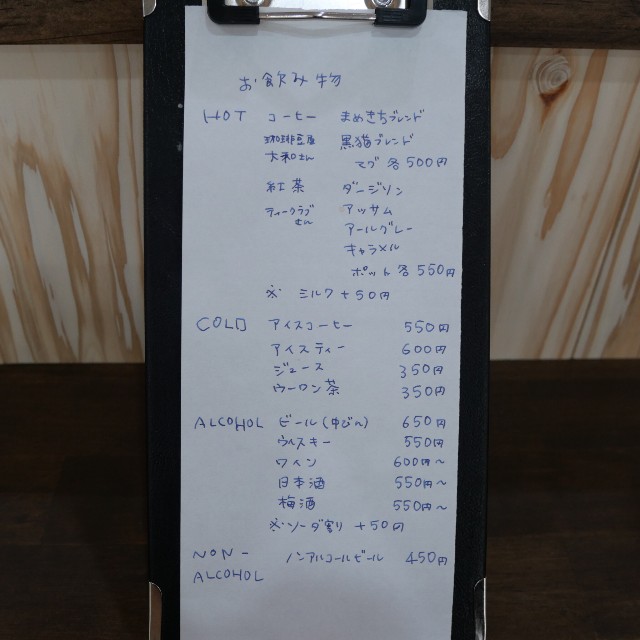 お飲み物
HOT コーヒー まめきちブレンド
珈琲豆屋 黒猫ブレンド
大和さん てづ 各500円
紅茶 ダージリン
ティークラブ アッサム
さん アールグレー
キャラメル
ポット 各550円
※ ミルク+50円
COLD アイスコーヒー 550円
アイスティー 600円
ジュース 350円
ウーロン茶 350円
ALCOHOL ビール(中びん) 650円
ウイスキー 550円
ワイン 600円~
日本酒 550円~
梅酒 550円~
※ソーダ割り +50円
NON- ノンアルコールビール 450円
ALCOHOL